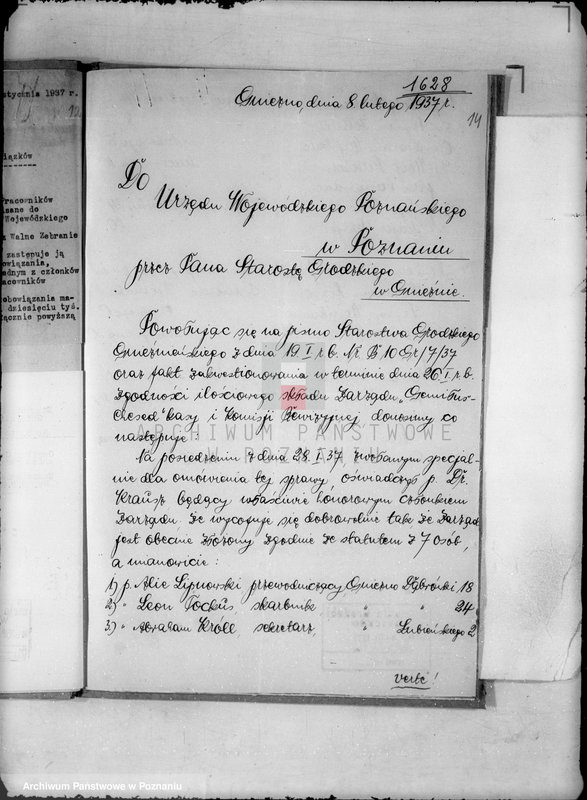 stycznia 1937 r.
iązków
racowników
sane do
Wojewódzkiego
Walne Zebranie
zastępuje ją
owiązania,
adnym z członków
acowników
obowiązania ma-
dziesięciu tyś.
łącznie powyższą
1628
Gniezno, dnia 8. lutego 1937 r.
14
Do
Urzędu Wojewódzkiego Poznańskiego
w Poznaniu
przez Pana Starostę Grodzkiego
w Gnieźnie.
Powołując się na pismo Starostwa Grodzkiego
Gnieźnieńskiego z dnia 19 I r b. Nr. B 10 Gr/7/37
oraz fakt zakwestionowania w terminie dnia 26 I r. b.
zgodności ilościowego składu Zarządu „Gemilus-
Chesed" kasy i Komisji Rewizyjnej donosimy co
następuje:
Na posiedzeniu z dnia 28. I. 37 zwołanym specjal-
nie dla omówienia tej sprawy, oświadczył p. Dr.
Krausz będący właściwie honorowym członkiem
Zarządu, że wycofuje się dobrowolnie tak że Zarząd
jest obecnie złożony zgodnie ze statutem z 7 osób,
a mianowicie:
1) p. Alie Lipnowski przewodniczący Gniezno Dąbrówki 18
2) " Leon Tockus, skarbnik " " 24
3) " Abraham Król, sekretarz, " Lubieńskiego 2
verte!
ARCHIWUM PAŃSTWOWE
W POZNANIU
Archiwum Państwowe w Poznaniu